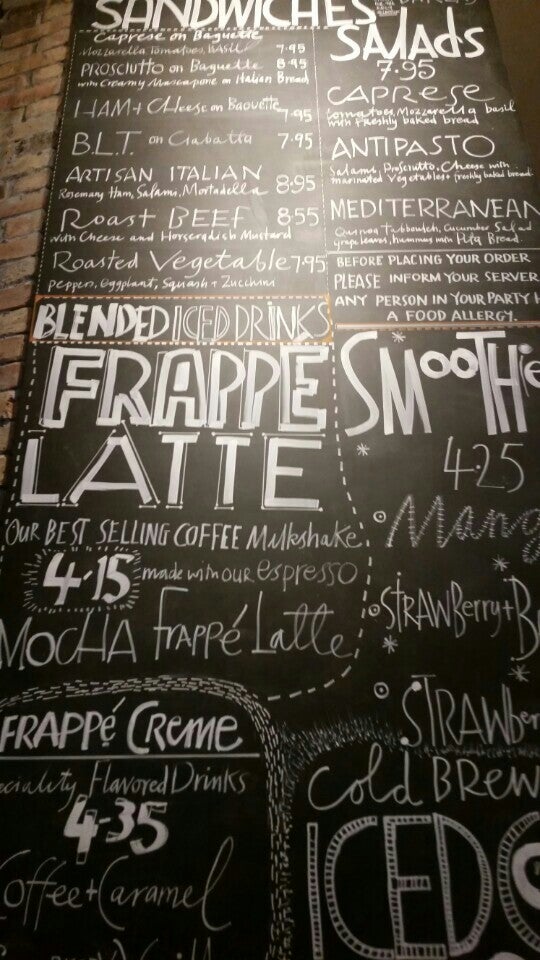 SANDWICHES
Caprese on Baguette
Mozzarella Tomatoes, Basil 7.95
PROSCIUTTO on Baguette 8.95
with Creamy Mascarpone on Italian Bread
HAM + Cheese on Baguette 7.95
B.L.T. on Ciabatta 7.95
ARTISAN ITALIAN 8.95
Rosemary Ham, Salami, Mortadella
Roast BEEF 8.55
with Cheese and Horseradish Mustard
Roasted Vegetable 7.95
peppers, Eggplant, Squash + Zucchini
SALAdS
7.95
CAPRESE
tomatoes, Mozzarella basil
with freshly baked bread
ANTIPASTO
Salami, Prosciutto, Cheese with
marinated vegetables + freshly baked bread
MEDITERRANEAN
Quinoa Tabbouleh, Cucumber Salad
grape leaves, hummus with Pita Bread.
BEFORE PLACING YOUR ORDER
PLEASE INFORM YOUR SERVER
ANY PERSON IN YOUR PARTY H
A FOOD ALLERGY.
BLENDED ICED DRINKS
FRAPPE
LATTE
OUR BEST SELLING COFFEE Milkshake
4.15 made with our espresso
MOCHA Frappé Latte
FRAPPé CReMe
eciality Flavored Drinks
4.35
Coffee + Caramel
SMooTHie
4.25
Mang
STRAWBerry + B
STRAWber
Cold BREW
ICED C